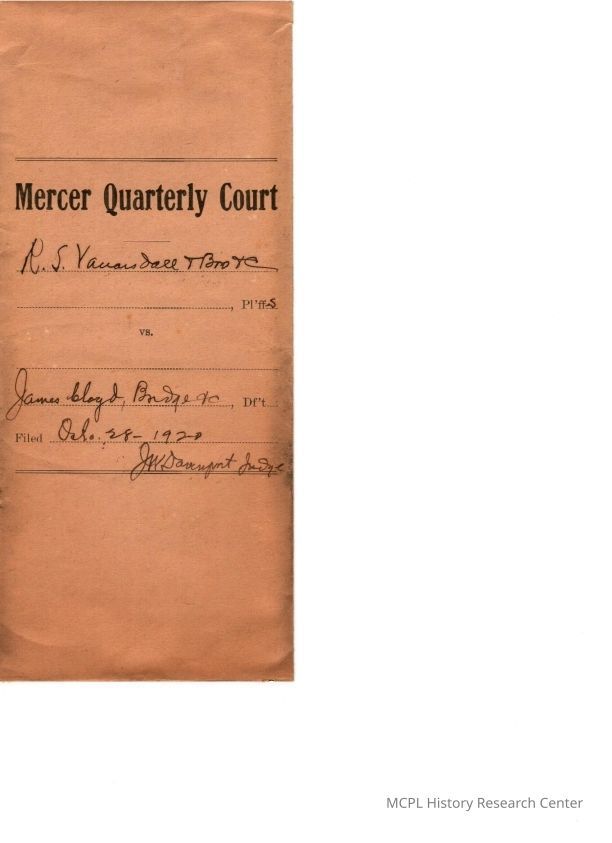 Mercer Quarterly Court
R. S. Vanarsdall & Bro &c
, Pl'ffs
vs.
James Cloyd, Bridge &c , Df't
Filed Oct. 28 - 1920
JW Davenport Judge
MCPL History Research Center